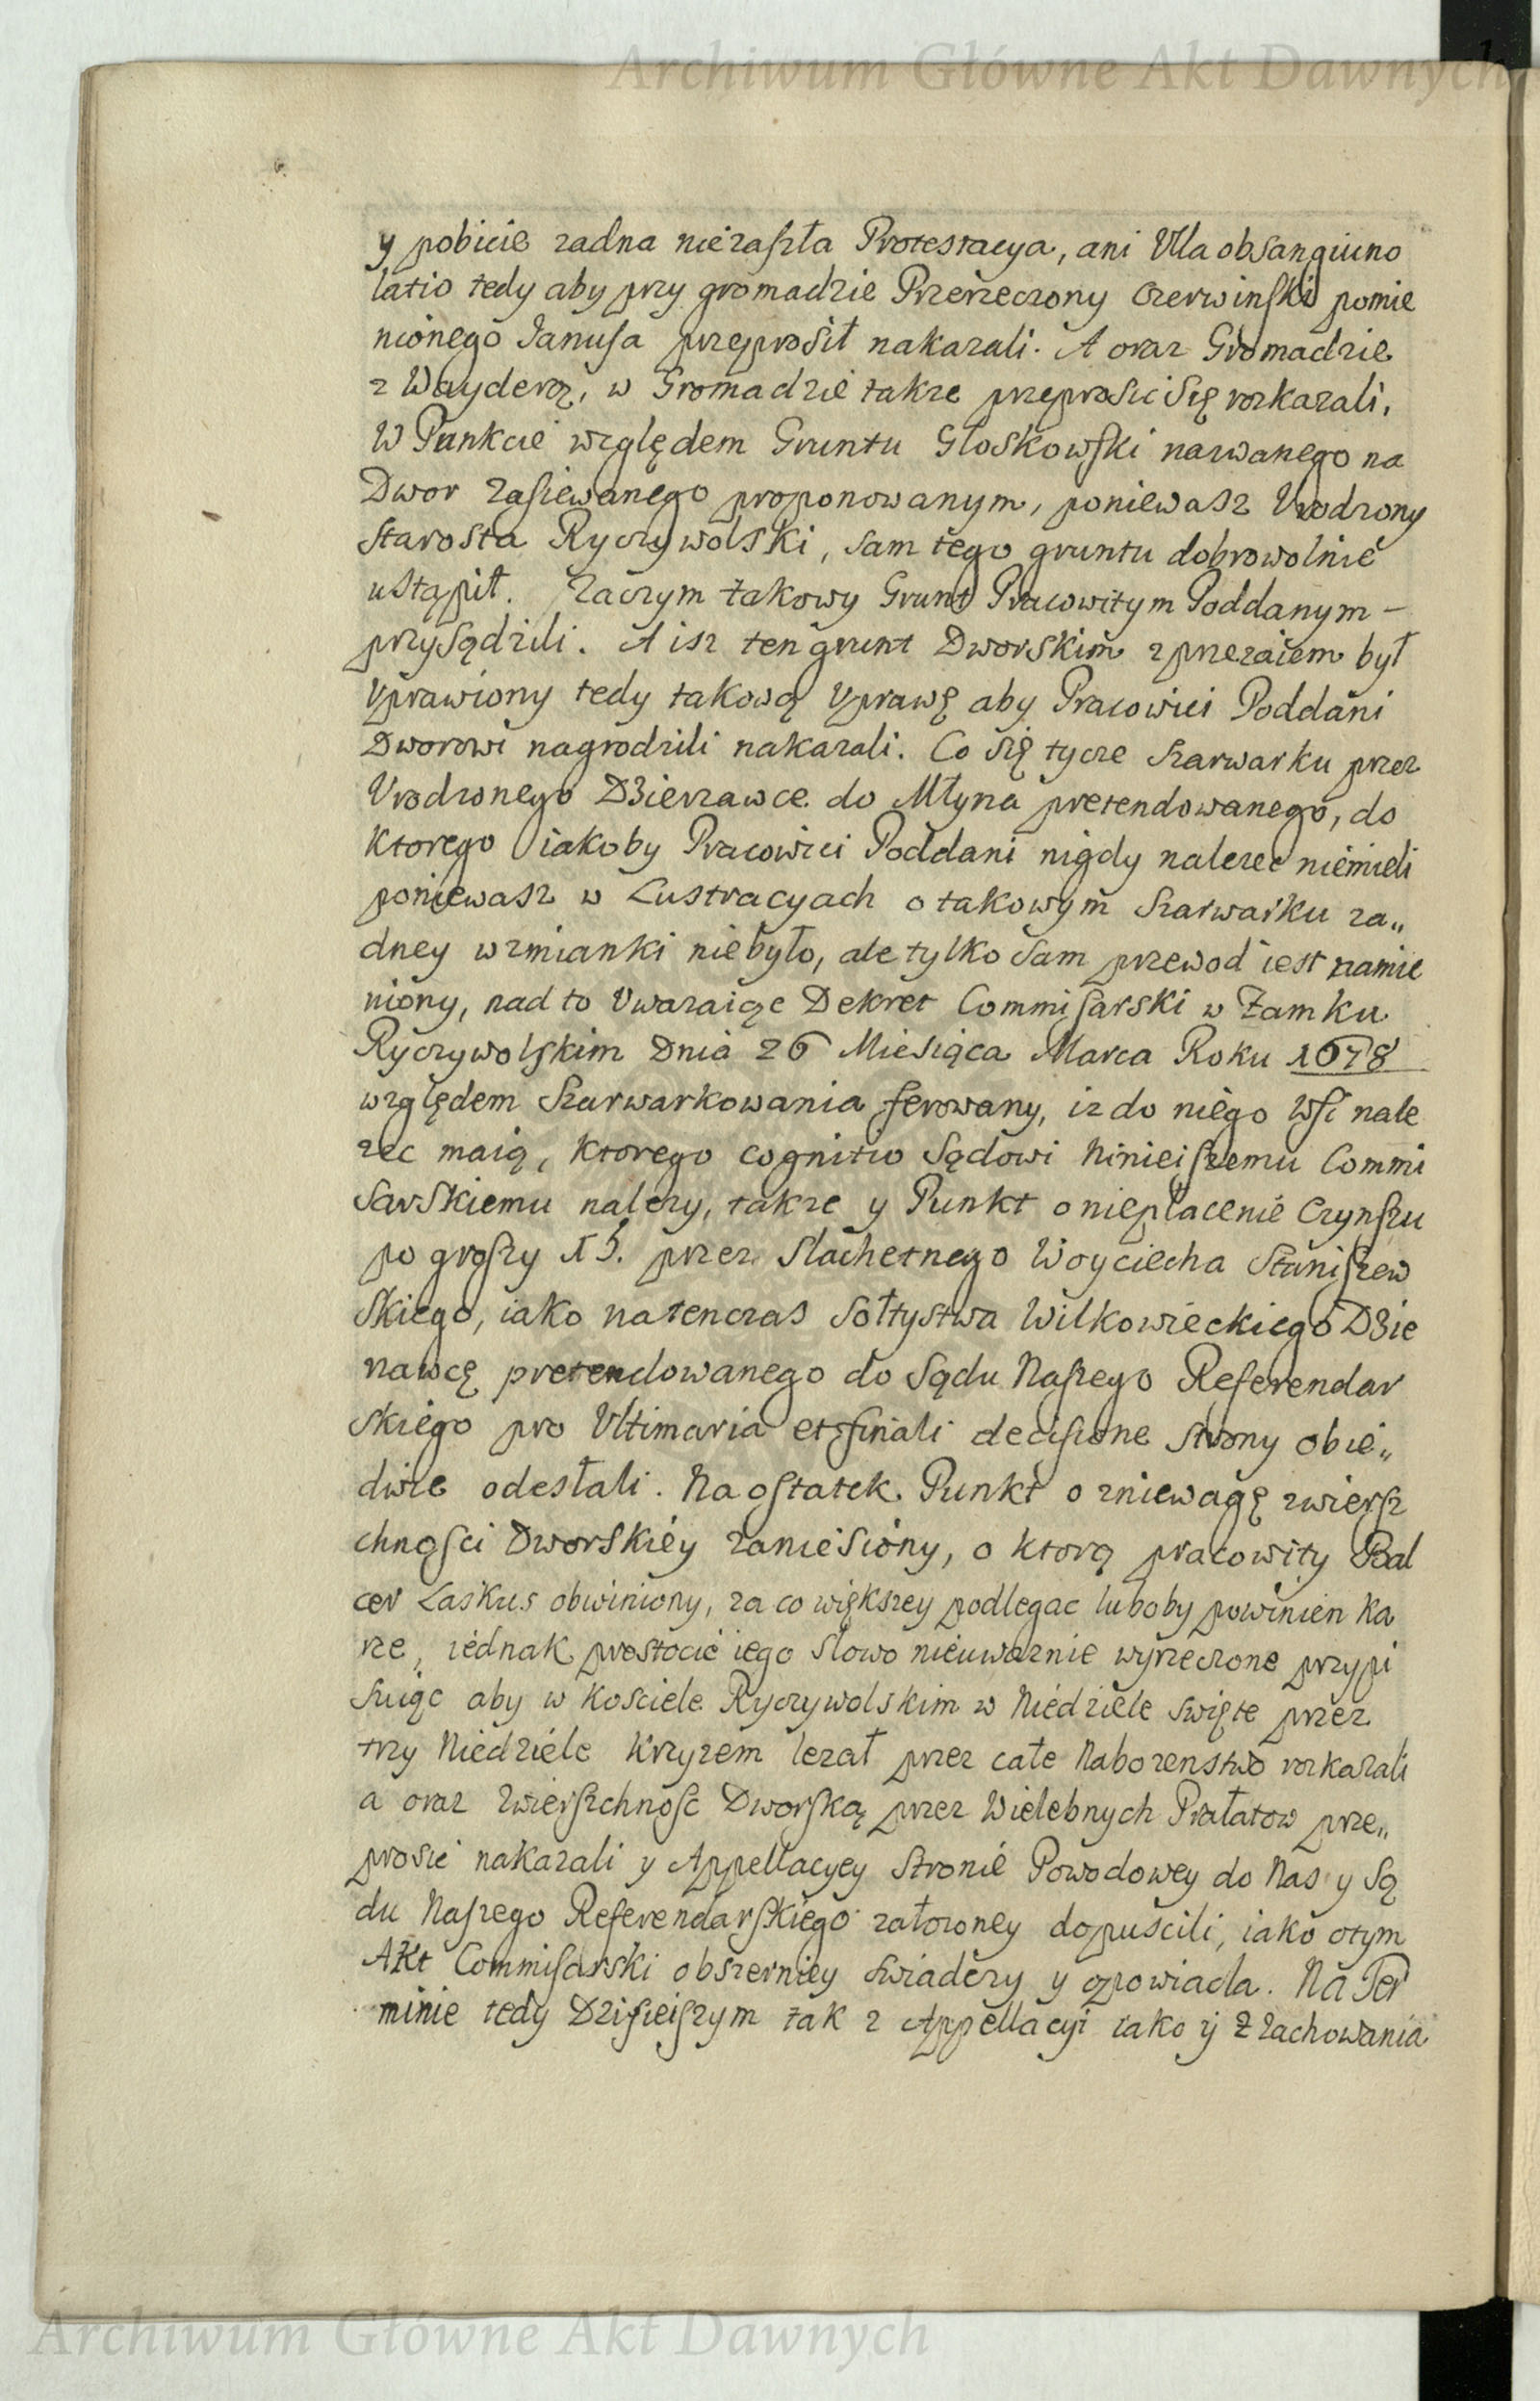 Archiwum Główne Akt Dawnych
y pobicie zadna niezaszła Protestacya, ani Vlla obsanguino
latio tedy aby przy gromadzie Przerzeczony Czerwinski pomie
nionego Janusa przeprosił nakazali. A oraz Gromadzie
z Wayderą, w Gromadzie takze przeprosic się rozkazali,
W Punkcie względem Gruntu Głoskowski nazwanego na
Dwor zasiewanego proponowanym, poniewasz Vrodzony
Starosta Ryczywolski, sam tego gruntu dobrowolnie
ustąpił. Zaczym takowy Grunt Pracowitym Poddanym -
przysądzili. A isz ten grunt Dworskim zprzezaiem był
Vprawiony tedy takową Vprawę aby Pracowici Poddani
Dworowi nagrodzili nakazali. Co się tycze Szarwarku przez
Vrodzonego Dzierzawce do Młyna pretendowanego, do
Ktorego iakoby Pracowici Poddani nigdy nalezec niemieli
poniewasz w Lustracyach o takowym Szarwarku za„
dney wzmianki niebyło, ale tylko sam przewod iest namie
niony, nad to Vwazaiąc Dekret Commisarski w Zamku
Ryczywolskim Dnia 26 Miesiąca Marca Roku 1678
względem Szarwarkowania ferowany, iz do niego Wsi nale
zec maią, Ktorego cognitio Sądowi Ninieiszemu Commi
sarskiemu nalezy, takze y Punkt o nieplacenie Czynszu
po groszy 15. przez Slachetnego Woyciecha Staniszew
skiego, iako natenczas Sołtystwa Wilkowieckiego Dzie
nawcę pretendowanego do Sądu Naszego Referendar
skiego pro Vltimaria et finali decisione Strony obie„
dwie odesłali. Na ostatek Punkt o zniewagę zwiersz
chnosci Dworskiey zaniesiony, o ktorą pracowity Bal
cer Laskus obwiniony, za co większey podlegac luboby powinien Ka
rze, iednak prostocie iego słowo nieuwaznie wyrzeczone przypi
suiąc aby w Kosciele Ryczywolskim w Niedziele swięte przez
trzy Niedziele Krzyzem lezał przez całe Nabozenstwo rozkazali
a oraz Zwierszchnosc Dworską przez Wielebnych Prałatow prze„
prosic nakazali y Appellacyey Stronie Powodowey do Nas y Są
du Naszego Referendarskiego załozoney dopuscili, iako otym
Akt Commisarski obszerniey swiadczy y opowiada. Na Ter
minie tedy Dzisieiszym tak z Appellacyi iako y z zachowania
Archiwum Główne Akt Dawnych